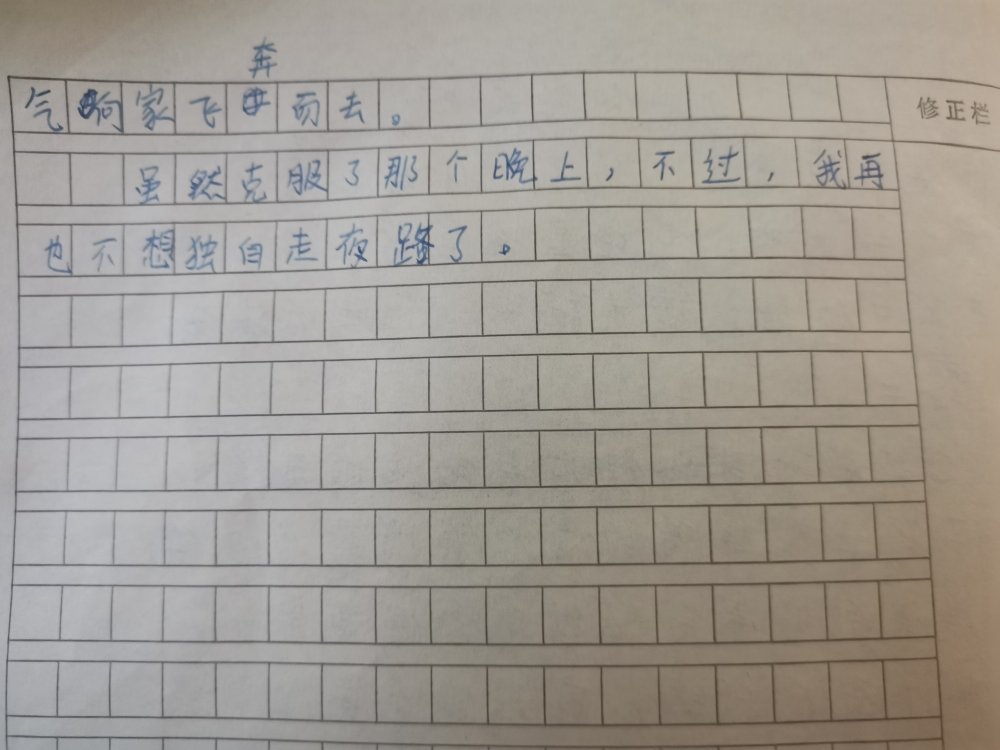 奔
气向家飞而去。
修正栏
虽然克服了那个晚上,不过,我再
也不想独自走夜路了。